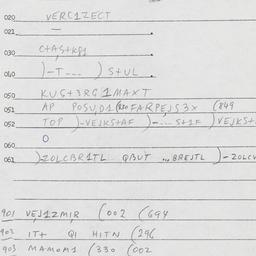 020 VERC1ZECT
021 —
030 C+A5+KP1
040 )-T--- ) S+UL.
050 KUG+3RG1MAXT
051 AP POSUD1(830 FARPEJS3X (849
052 TOP )-VEJKS+AF )-... S+1F )VEJKS+
O
060
061 )ZOLCBR1TL QBUT ... BREJTL )-ZOLCV
901 VEJ1ZMIR (002 (694
902 IT+ Q1 HITN (296
903 MAMOM1 (330 (002